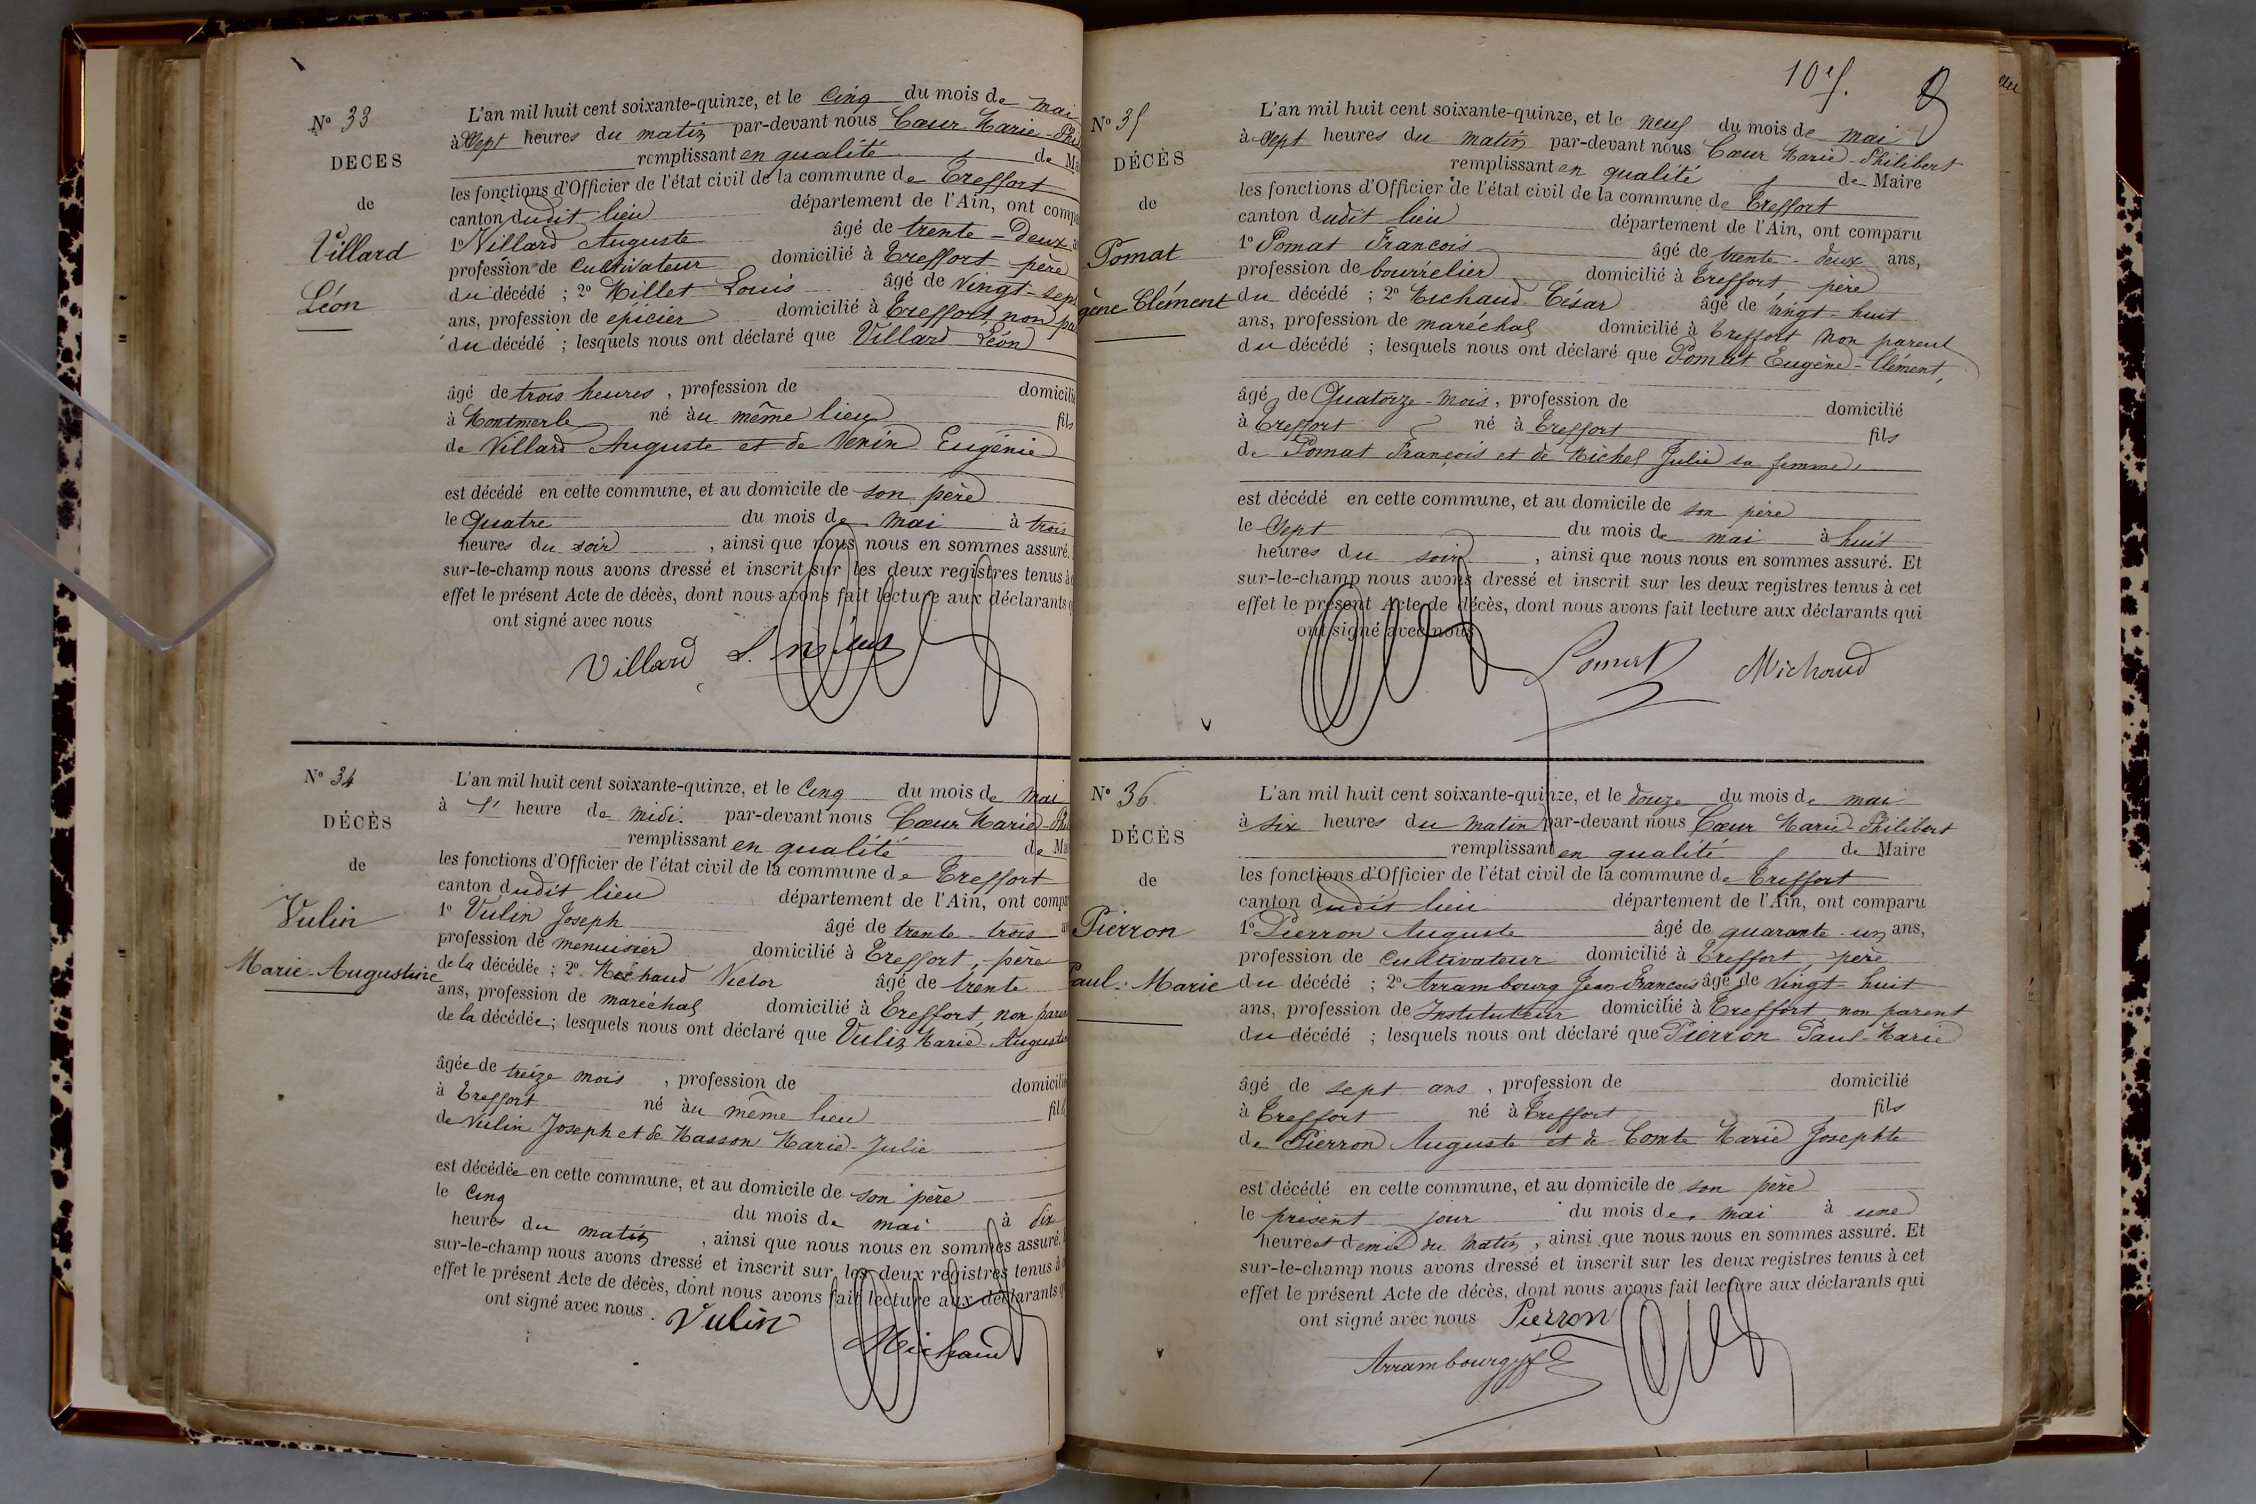 N° 33
DECES
de
Villard
Léon
L'an mil huit cent soixante-quinze, et le Cinq du mois de mai
à Sept heures du matin par-devant nous Cœur Marie-Phi
remplissant en qualité de Ma
les fonctions d'Officier de l'état civil de la commune de Treffort
canton dudit lieu département de l'Ain, ont compa
1° Villard Auguste âgé de trente-Deux a
profession de Cultivateur domicilié à Treffort père
du décédé ; 2° Millet Louis âgé de Vingt-sept
ans, profession de épicier domicilié à Treffort non pa
du décédé ; lesquels nous ont déclaré que Villard Léon
âgé de trois heures, profession de domicilié
à Montmerle né au même lieu fils
de Villard Auguste et de Venin Eugénie
est décédé en cette commune, et au domicile de son père
le Quatre du mois de mai à trois
heures du soir, ainsi que nous nous en sommes assuré.
sur-le-champ nous avons dressé et inscrit sur les deux registres tenus à c
effet le présent Acte de décès, dont nous avons fait lecture aux déclarants q
ont signé avec nous
Villard
N° 34
DÉCÈS
de
Vulin
Marie-Augustine
L'an mil huit cent soixante-quinze, et le Cinq du mois de mai
à 1' heure de midi. par-devant nous Cœur Marie-Phi
remplissant en qualité de Ma
les fonctions d'Officier de l'état civil de la commune de Treffort
canton dudit lieu département de l'Ain, ont compa
1° Vulin Joseph âgé de trente-trois a
profession de menuisier domicilié à Treffort, père
de la décédée ; 2° Michaud Victor âgé de trente
ans, profession de maréchal domicilié à Treffort, non paren
de la décédée ; lesquels nous ont déclaré que Vulin Marie-Augustin
âgée de treize mois, profession de domicilié
à Treffort né au même lieu fil
de Vulin Joseph et de Masson Marie-Julie
est décédée en cette commune, et au domicile de son père
le Cinq du mois de mai à dix
heures du matin, ainsi que nous nous en sommes assuré.
sur-le-champ nous avons dressé et inscrit sur les deux registres tenus à c
effet le présent Acte de décès, dont nous avons fait lecture aux déclarants q
ont signé avec nous.
Vulin Michaud
10 f.
N° 35
DÉCÈS
de
Pomat
gène Clément
L'an mil huit cent soixante-quinze, et le neuf du mois de mai
à Sept heures du matin par-devant nous Cœur Marie-Philibert
remplissant en qualité de Maire
les fonctions d'Officier de l'état civil de la commune de Treffort
canton dudit lieu département de l'Ain, ont comparu
1° Pomat François âgé de trente-deux ans,
profession de bourrelier domicilié à Treffort, père
du décédé ; 2° Michaud César âgé de vingt-huit
ans, profession de maréchal domicilié à Treffort non parent
du décédé ; lesquels nous ont déclaré que Pomat Eugène-Clément,
âgé de Quatorze-mois, profession de domicilié
à Treffort né à Treffort fils
de Pomat François et de Michel Julie sa femme,
est décédé en cette commune, et au domicile de son père
le Sept du mois de mai à huit
heures du soir, ainsi que nous nous en sommes assuré. Et
sur-le-champ nous avons dressé et inscrit sur les deux registres tenus à cet
effet le présent Acte de décès, dont nous avons fait lecture aux déclarants qui
ont signé avec nous
Pomat Michaud
N° 36
DÉCÈS
de
Pierron
Paul-Marie
L'an mil huit cent soixante-quinze, et le douze du mois de mai
à six heures du matin par-devant nous Cœur Marie-Philibert
remplissant en qualité de Maire
les fonctions d'Officier de l'état civil de la commune de Treffort
canton dudit lieu département de l'Ain, ont comparu
1° Pierron Auguste âgé de quarante-un ans,
profession de Cultivateur domicilié à Treffort, père
du décédé ; 2° Arrambourg Jean François âgé de Vingt-huit
ans, profession de Instituteur domicilié à Treffort non parent
du décédé ; lesquels nous ont déclaré que Pierron Paul-Marie
âgé de sept ans, profession de domicilié
à Treffort né à Treffort fils
de Pierron Auguste et de Comte Marie Josephte
est décédé en cette commune, et au domicile de son père
le présent jour du mois de mai à une
heure et demie du matin, ainsi que nous nous en sommes assuré. Et
sur-le-champ nous avons dressé et inscrit sur les deux registres tenus à cet
effet le présent Acte de décès, dont nous avons fait lecture aux déclarants qui
ont signé avec nous
Pierron
Arrambourg